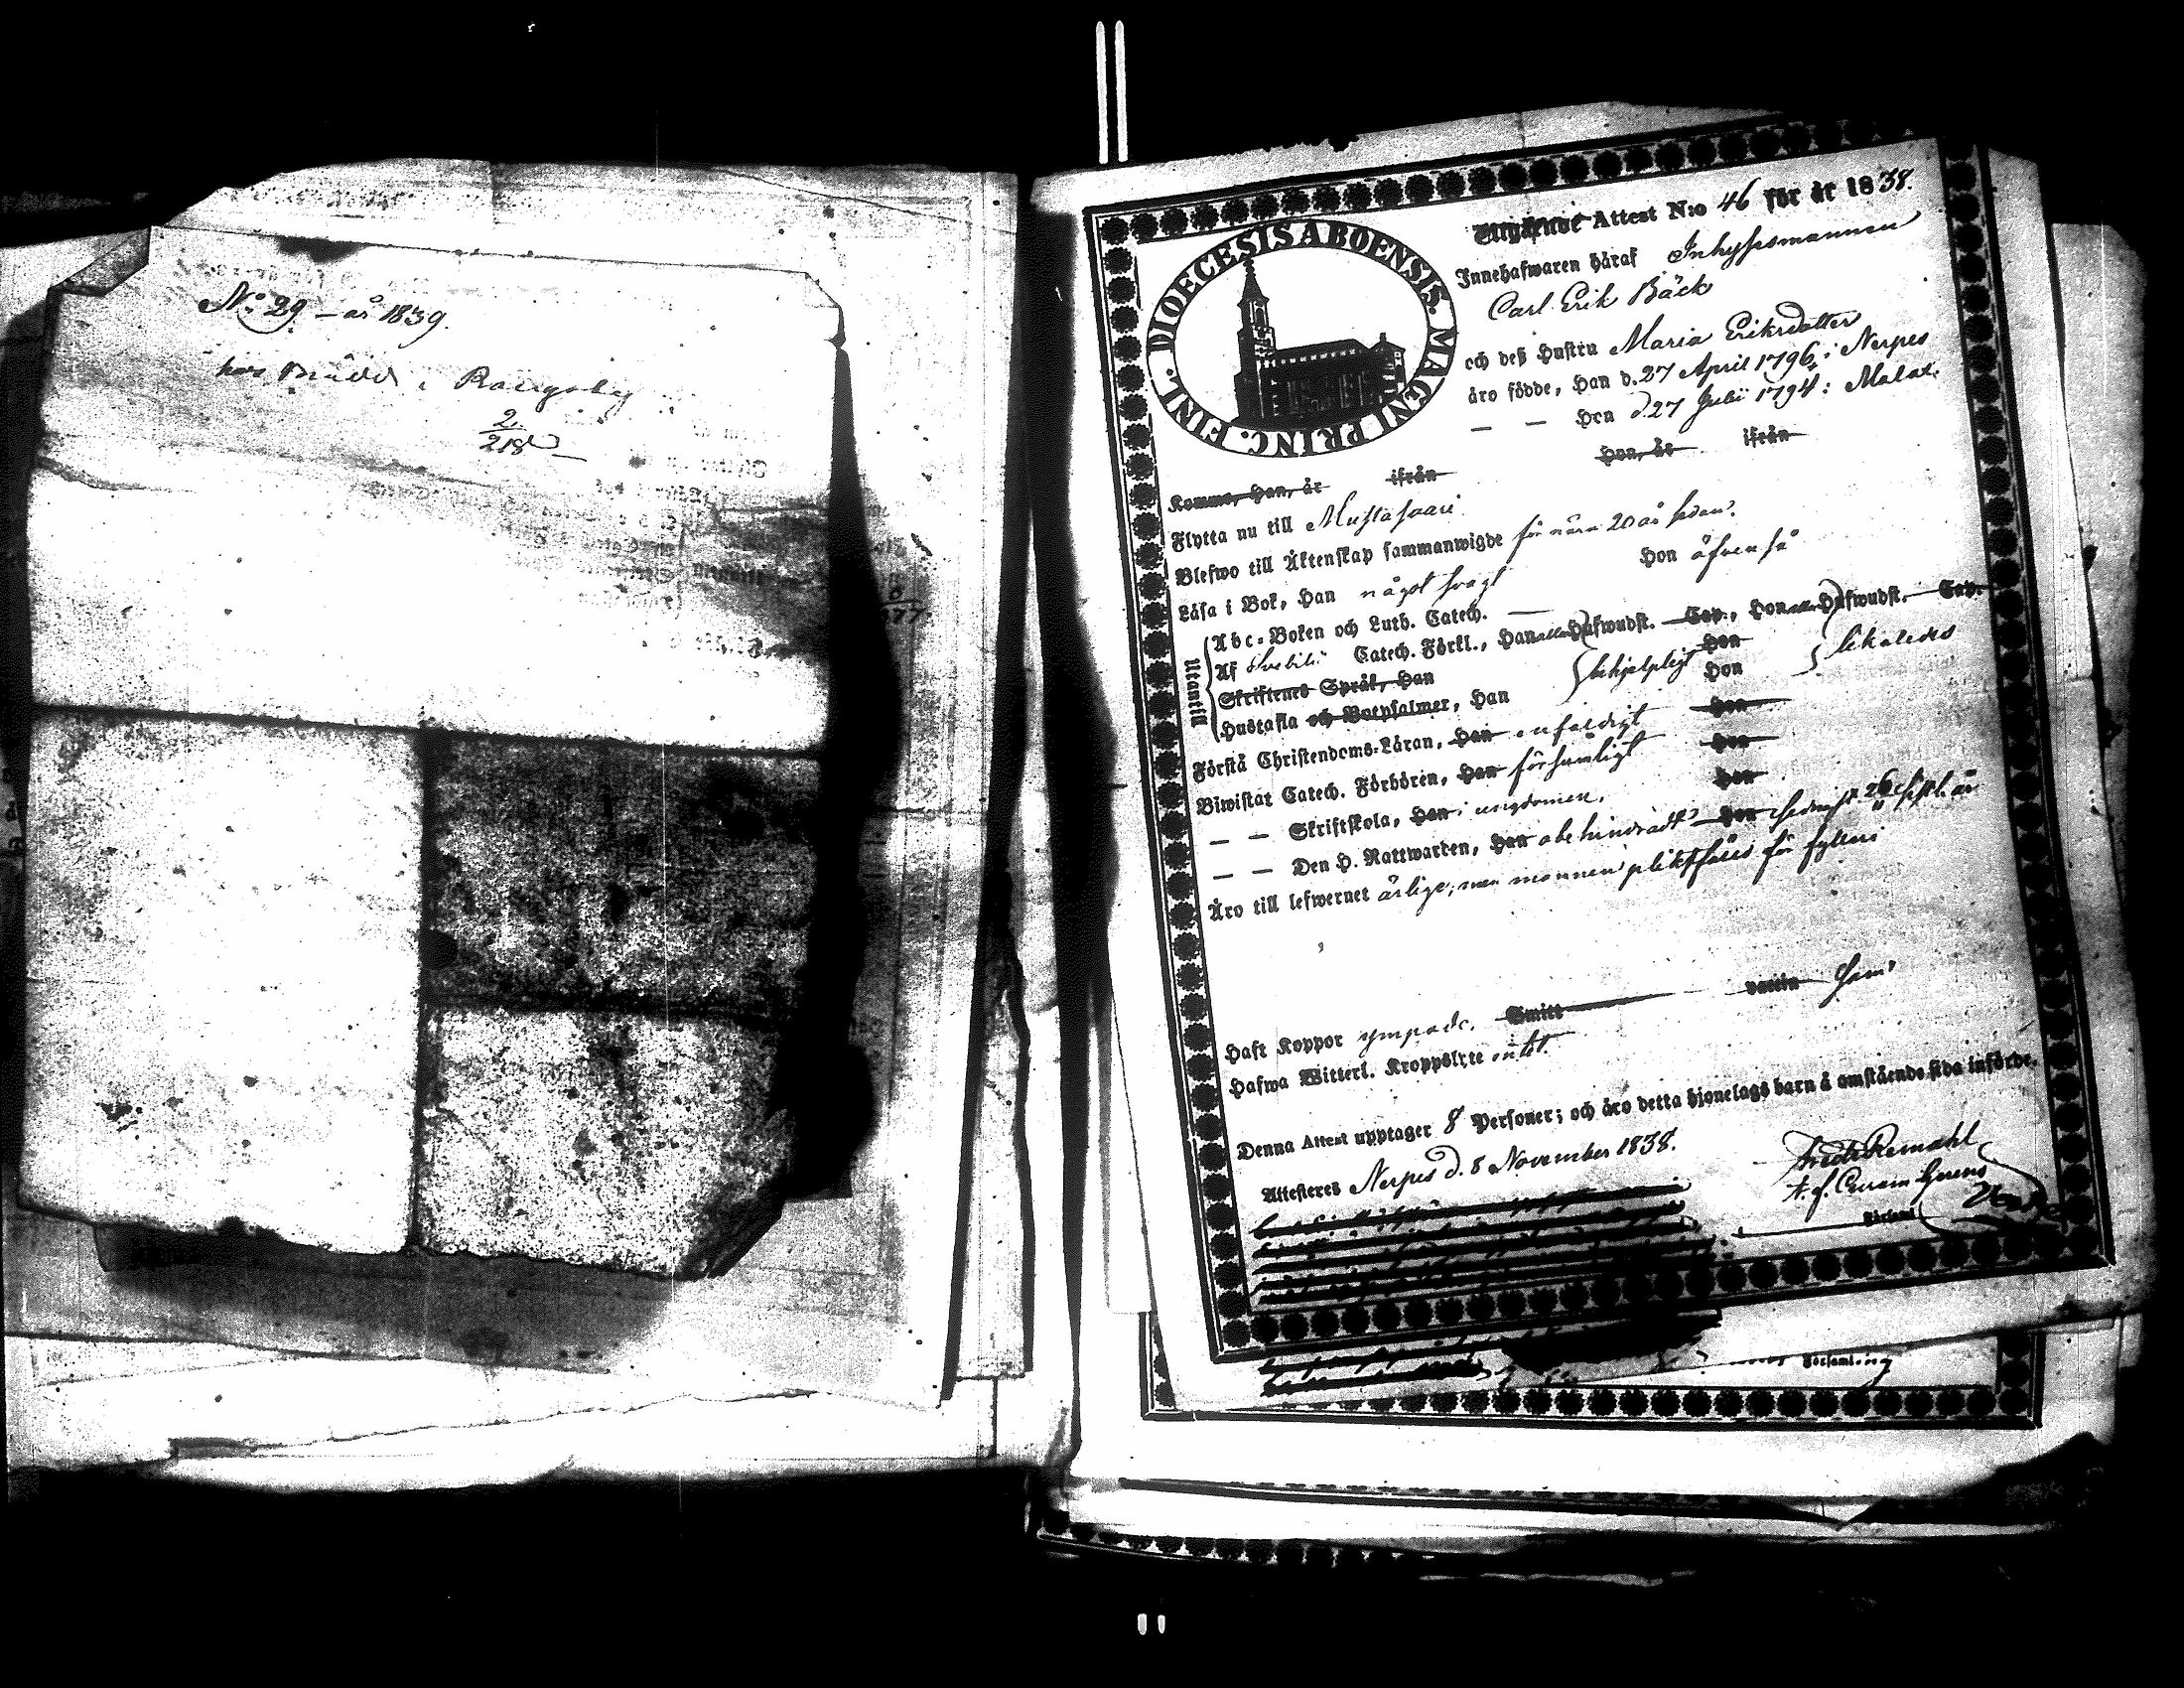 No: 29 – år 1839.
hos Brudd i Rangsby
2
218
DIOECESIS ABOENSIS. MAGNI PRINC. FINL.
Utgående Attest N:o 46 för år 1838.
Innehafwaren häraf Inhysesmannen
Carl Erik Bäck
och deß Hustru Maria Eriksdotter
äro födde, Han d. 27 April 1796 i Nerpes
— — Hon d. 27 Julii 1794 i Malax.
Komne, Han, år ifrån Hon, år ifrån
Flytta nu till Mustasaari.
Blefwo till Äktenskap sammanwigde för nära 20 år sedan.
Läsa i Bok, Han något svagt Hon äfvenså
Utantill
Abc-Boken och Luth. Catech. —
Af Svebilii Catech. Förkl., Han alla Hufwudst. Cap., Hon alla Hufwudst. Cap.
Skriftenes Språk, Han Hon
Hustafla och Botpsalmer, Han behjelpligt Hon likaledes
Förstå Christendoms-Läran, Han enfaldigt Hon
Biwistat Catech. Förhören, Han försumligt Hon
— — Skriftskola, Han i ungdomen. Hon
— — Den H. Nattwarden, Han obehindradt Hon sednast 26
Äro till lefwernet ärlige, men mannen pliktfäld för fylleri
Haft Koppor ympade. Smitt vaccin
Hafwa Witterl. Kroppslyte intet.
Denna Attest upptager 8 Personer; och äro detta hjonelags barn å omstående sida införde.
Attesteras Nerpes d. 8 November 1838.
Församl.
Församling